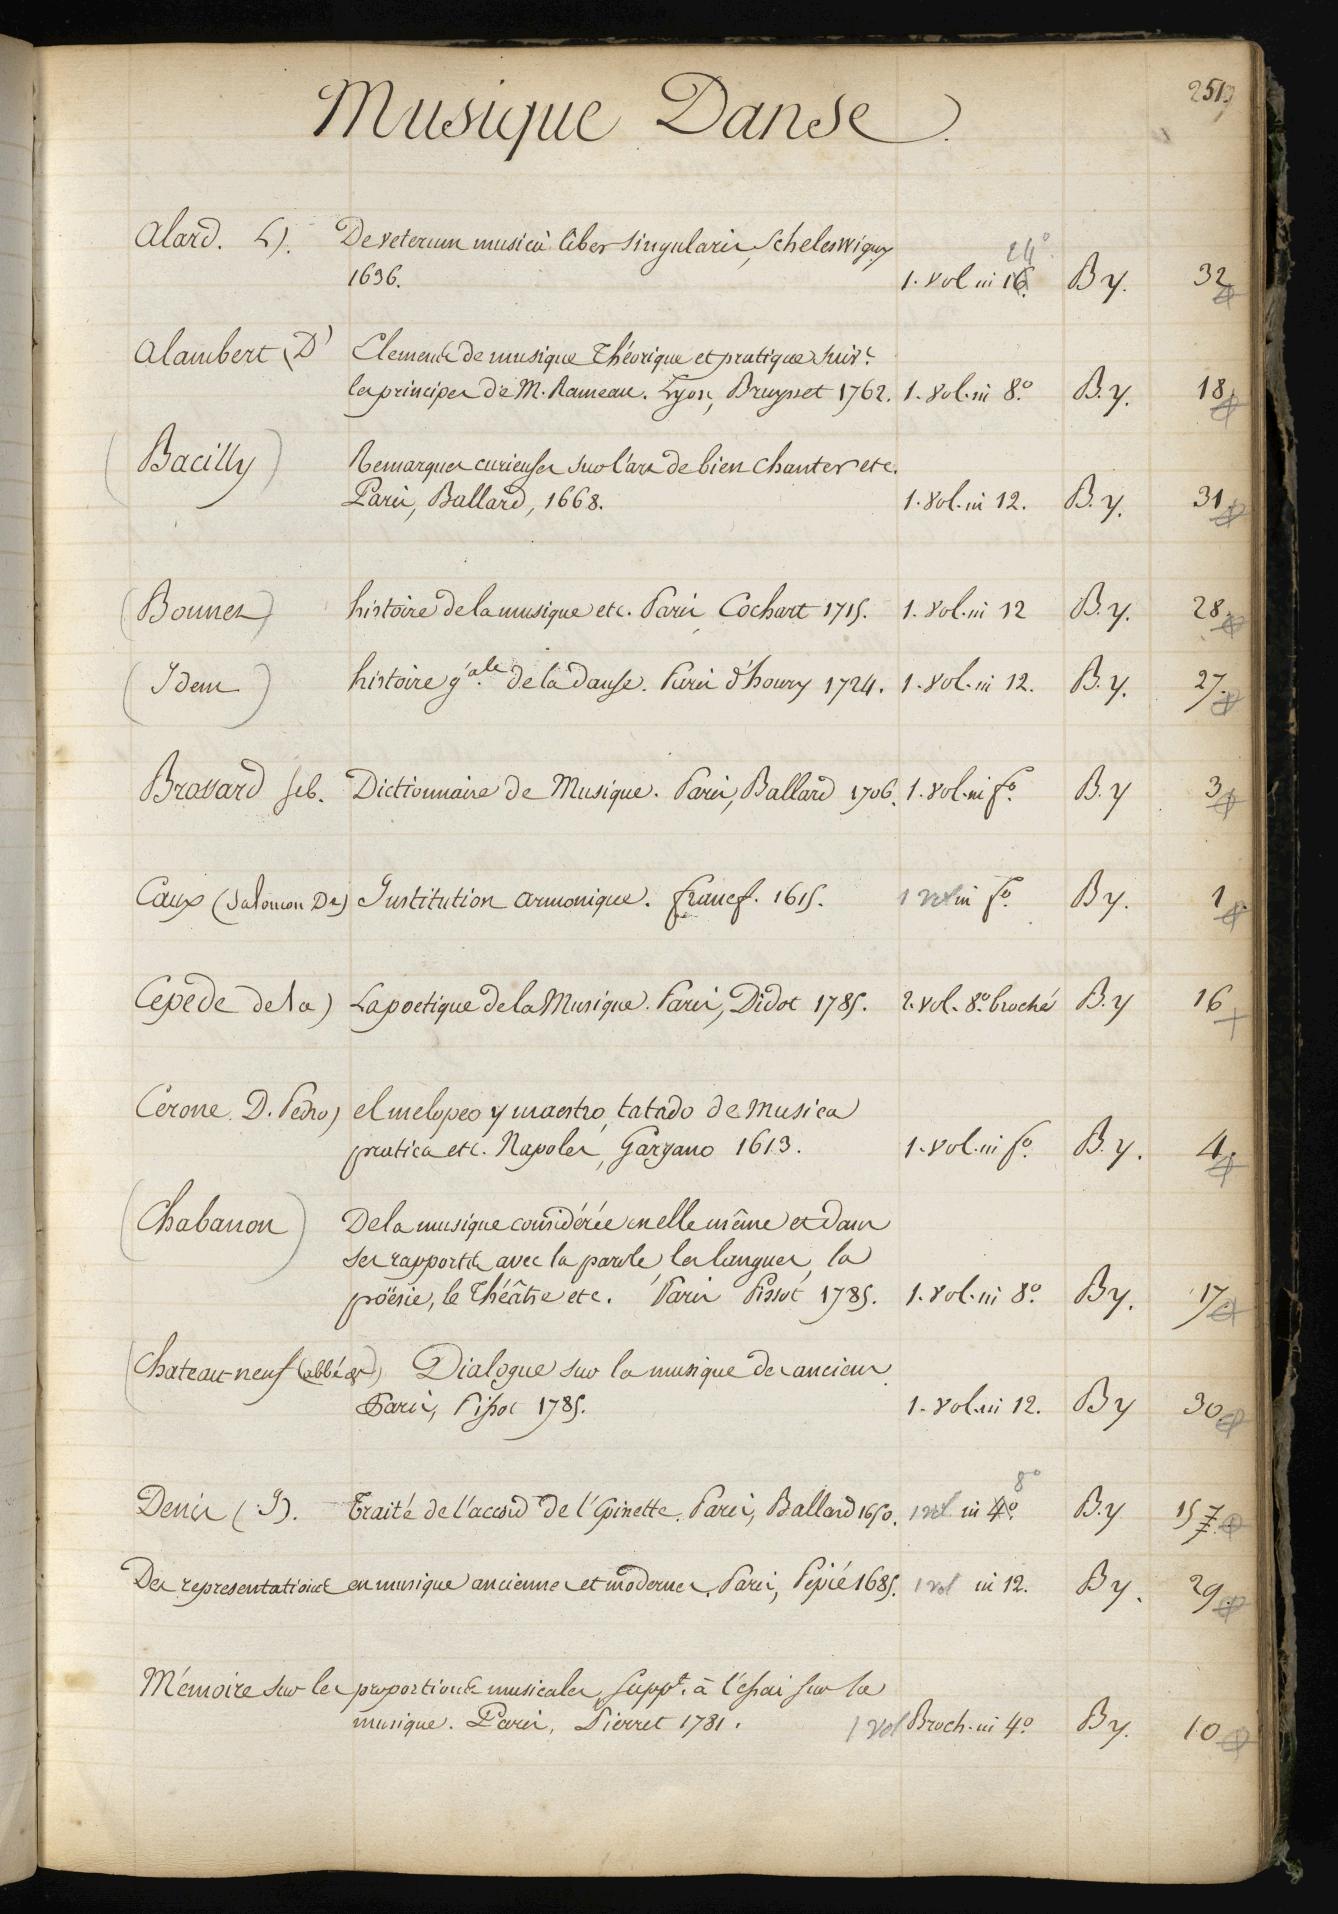 251
Musique Danse.
Alard. L). De veterum musicâ liber singularis, Scheleswigœ
24°
1636. 1. vol in 16. B y. 32
Alambert (D' Elements de musique théorique et pratique suivt
les principes de M. Rameau. Lyon, Bruyset 1762. 1. vol. in 8.° B. y. 18
(Bacilly) Remarques curieuses sur l'art de bien chanter etc.
Paris, Ballard, 1668. 1. vol. in 12. B. y. 31
(Bonnet) histoire de la musique etc. Paris Cochart 1715. 1. vol. in 12 B. y. 28
(Idem) histoire g'ale. de la danse. Paris d'houry 1724. 1. vol. in 12. B. y. 27.
Brossard seb. Dictionnaire de Musique. Paris, Ballard 1706. 1. vol. in f°. B. y 3
Caux (Salomon De) Institution armonique. francf. 1615. 1 vol in f°. B y. 1
Cepede de la) La poetique de la Musique. Paris, Didot 1785. 2. vol. 8.° broché B. y 16
Cerone D. Pedro) el melopeo y maestro, tatado de Musica
pratica etc. Napoles, Gargano 1613. 1. vol. in f°. B. y. 4
(Chabanon) De la musique considérée en elle même et dans
ses rapports avec la parole les langues, la
poësie, le théâtre etc. Paris Pissot 1785. 1. vol. in 8°. B y. 17
(Chateau-neuf (abbé de) Dialogue sur la musique des anciens
Paris, Pissot 1785. 1. vol. in 12. B y 30
8°
Denis (J). Traité de l'accord de l'Epinette. Paris, Ballard 1650. 1 vol in 4°. B. y 15
Des representations en musique anciennes et modernes. Paris, Pepié 1685. 1 vol in 12. B y. 29
Mémoire sur les proportions musicales, suppt. à l'essai sur la
musique. Paris, Pierret 1781. 1 vol Broch. in 4° B y. 10